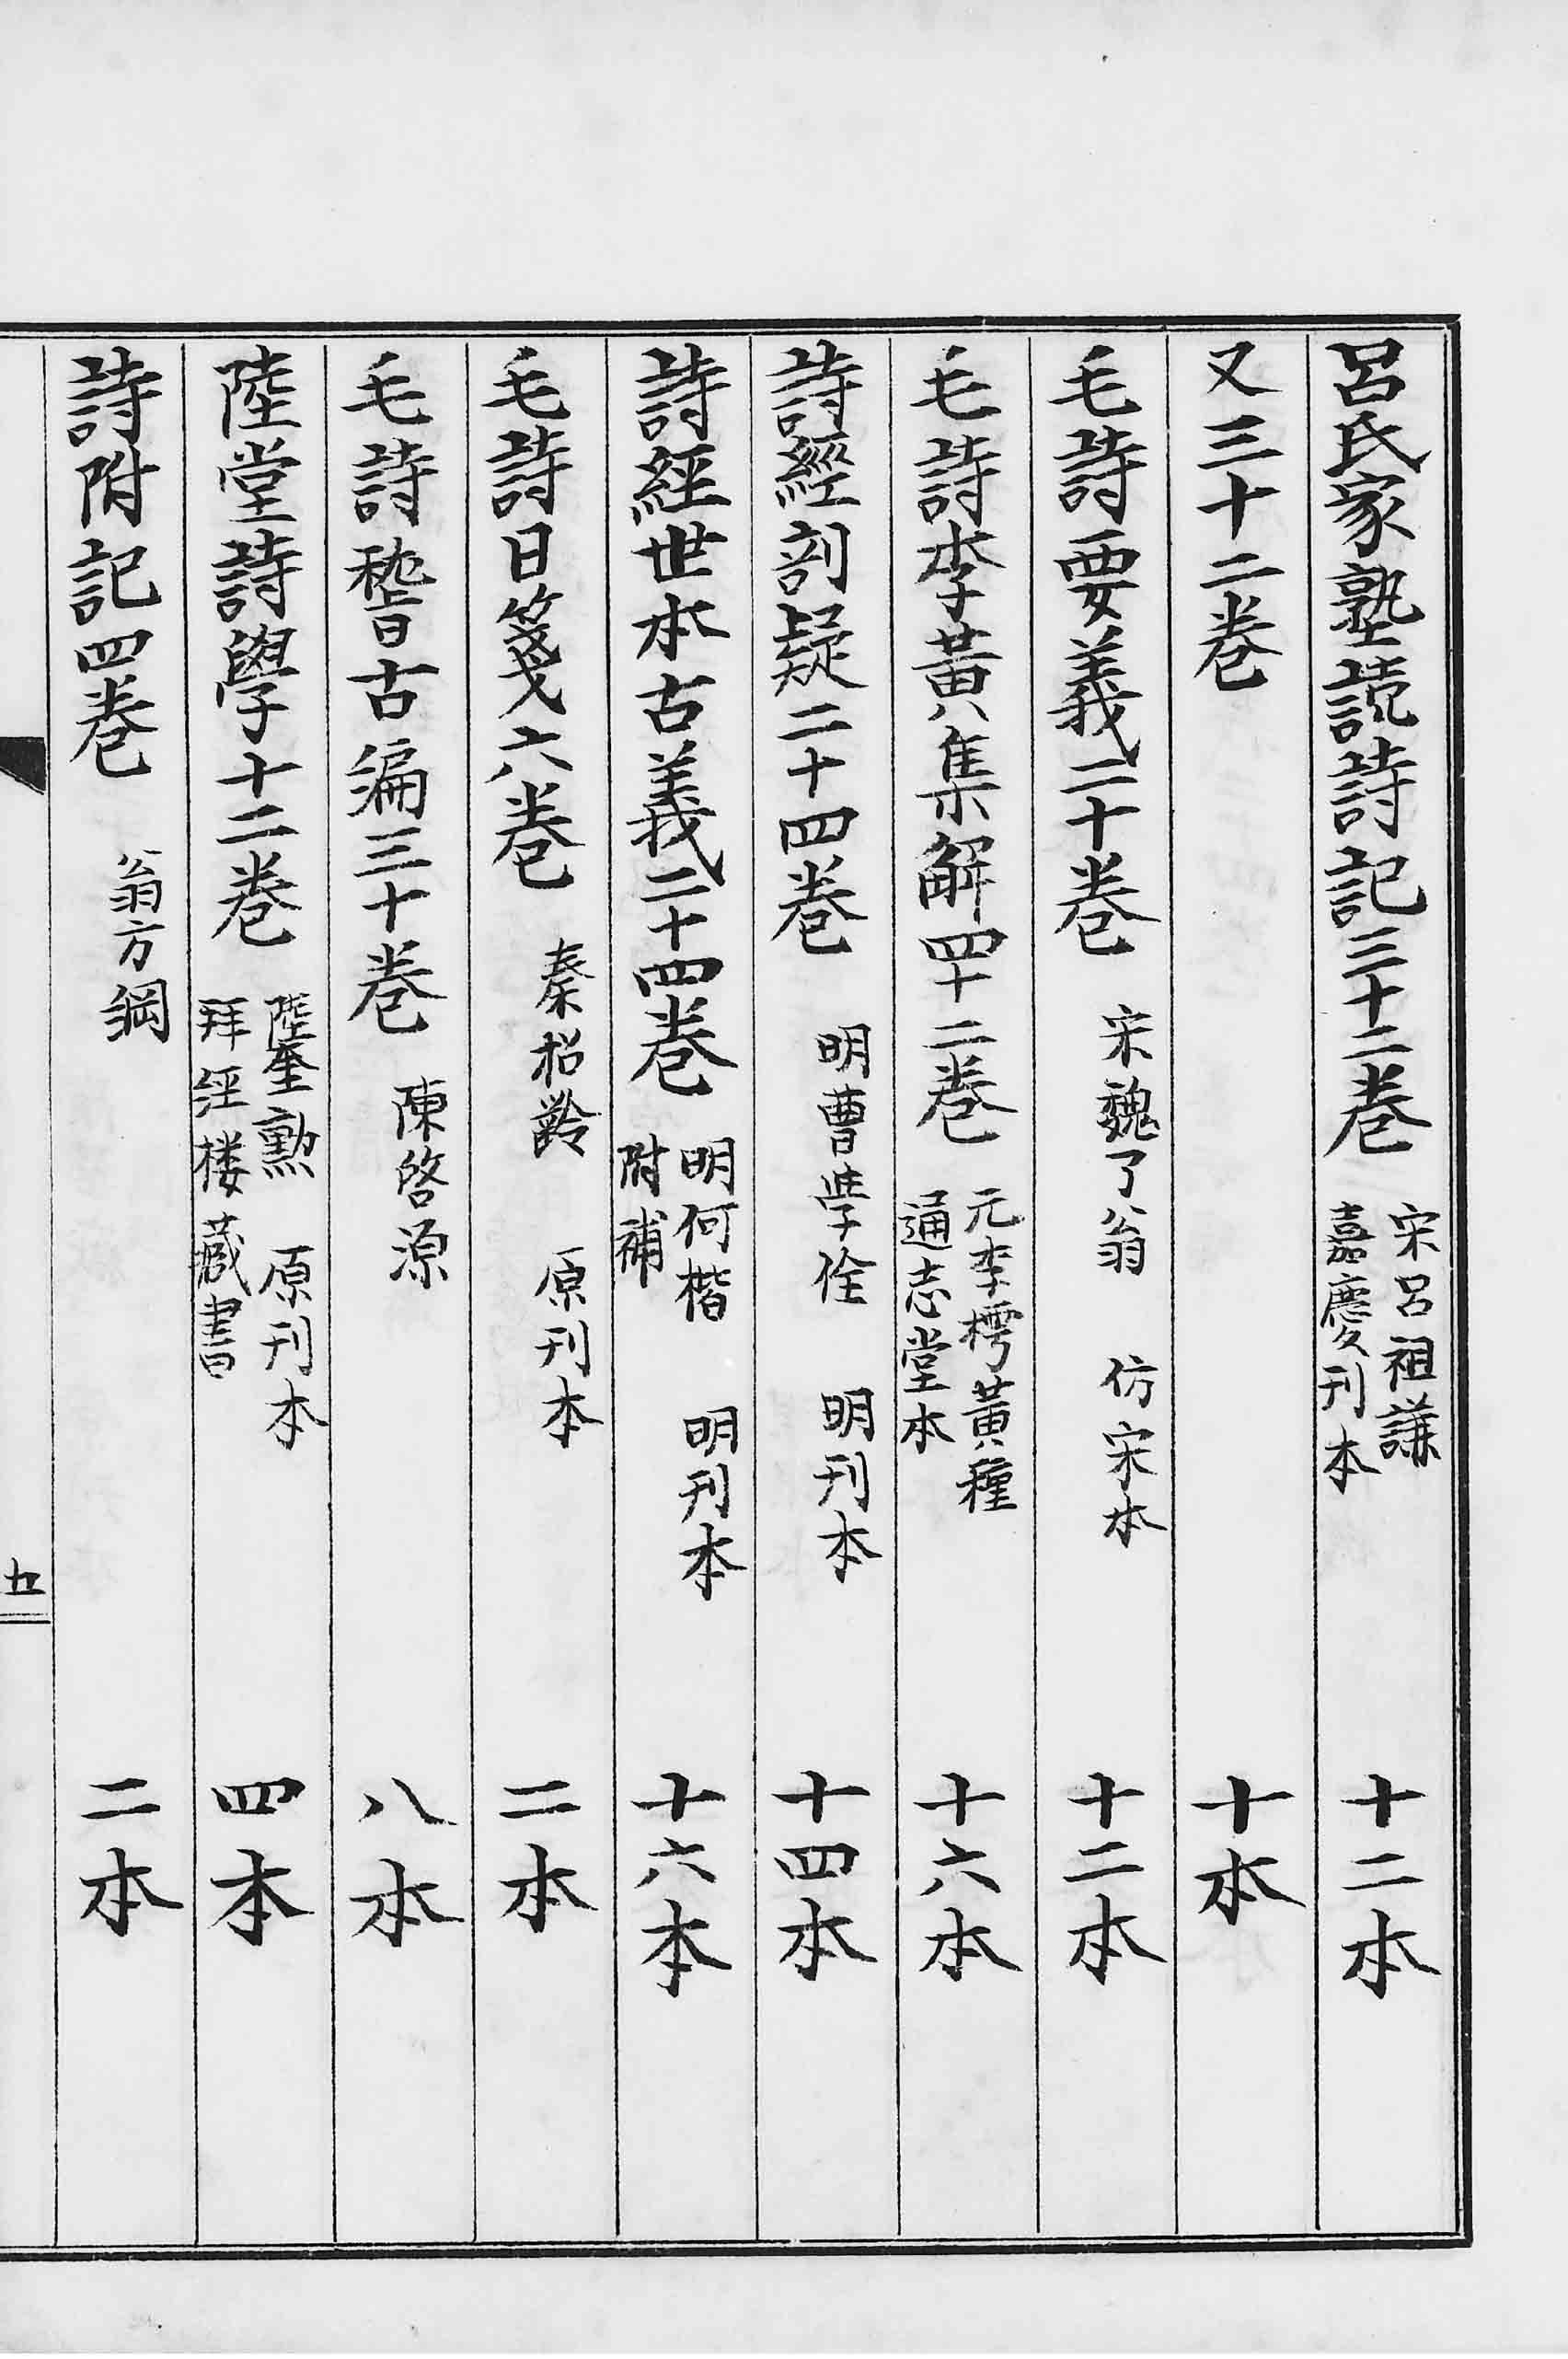 呂氏家塾読詩記三十二卷 宋呂祖謙 嘉慶刊本 十二本
又三十二卷 十本
毛詩要義二十卷 宋魏了翁 仿宋本 十二本
毛詩李黃集解四十二卷 元李樗黃櫄 通志堂本 十六本
詩經剖疑二十四卷 明曹學佺 明刊本 十四本
詩經世本古義二十四卷 明何楷 附補 明刊本 十六本
毛詩日箋六卷 秦松齡 原刊本 二本
毛詩稽古編三十卷 陳啓源 八本
陸堂詩學十二卷 陸奎勳 原刊本 拜經楼藏書 四本
詩附記四卷 翁方綱 二本
五